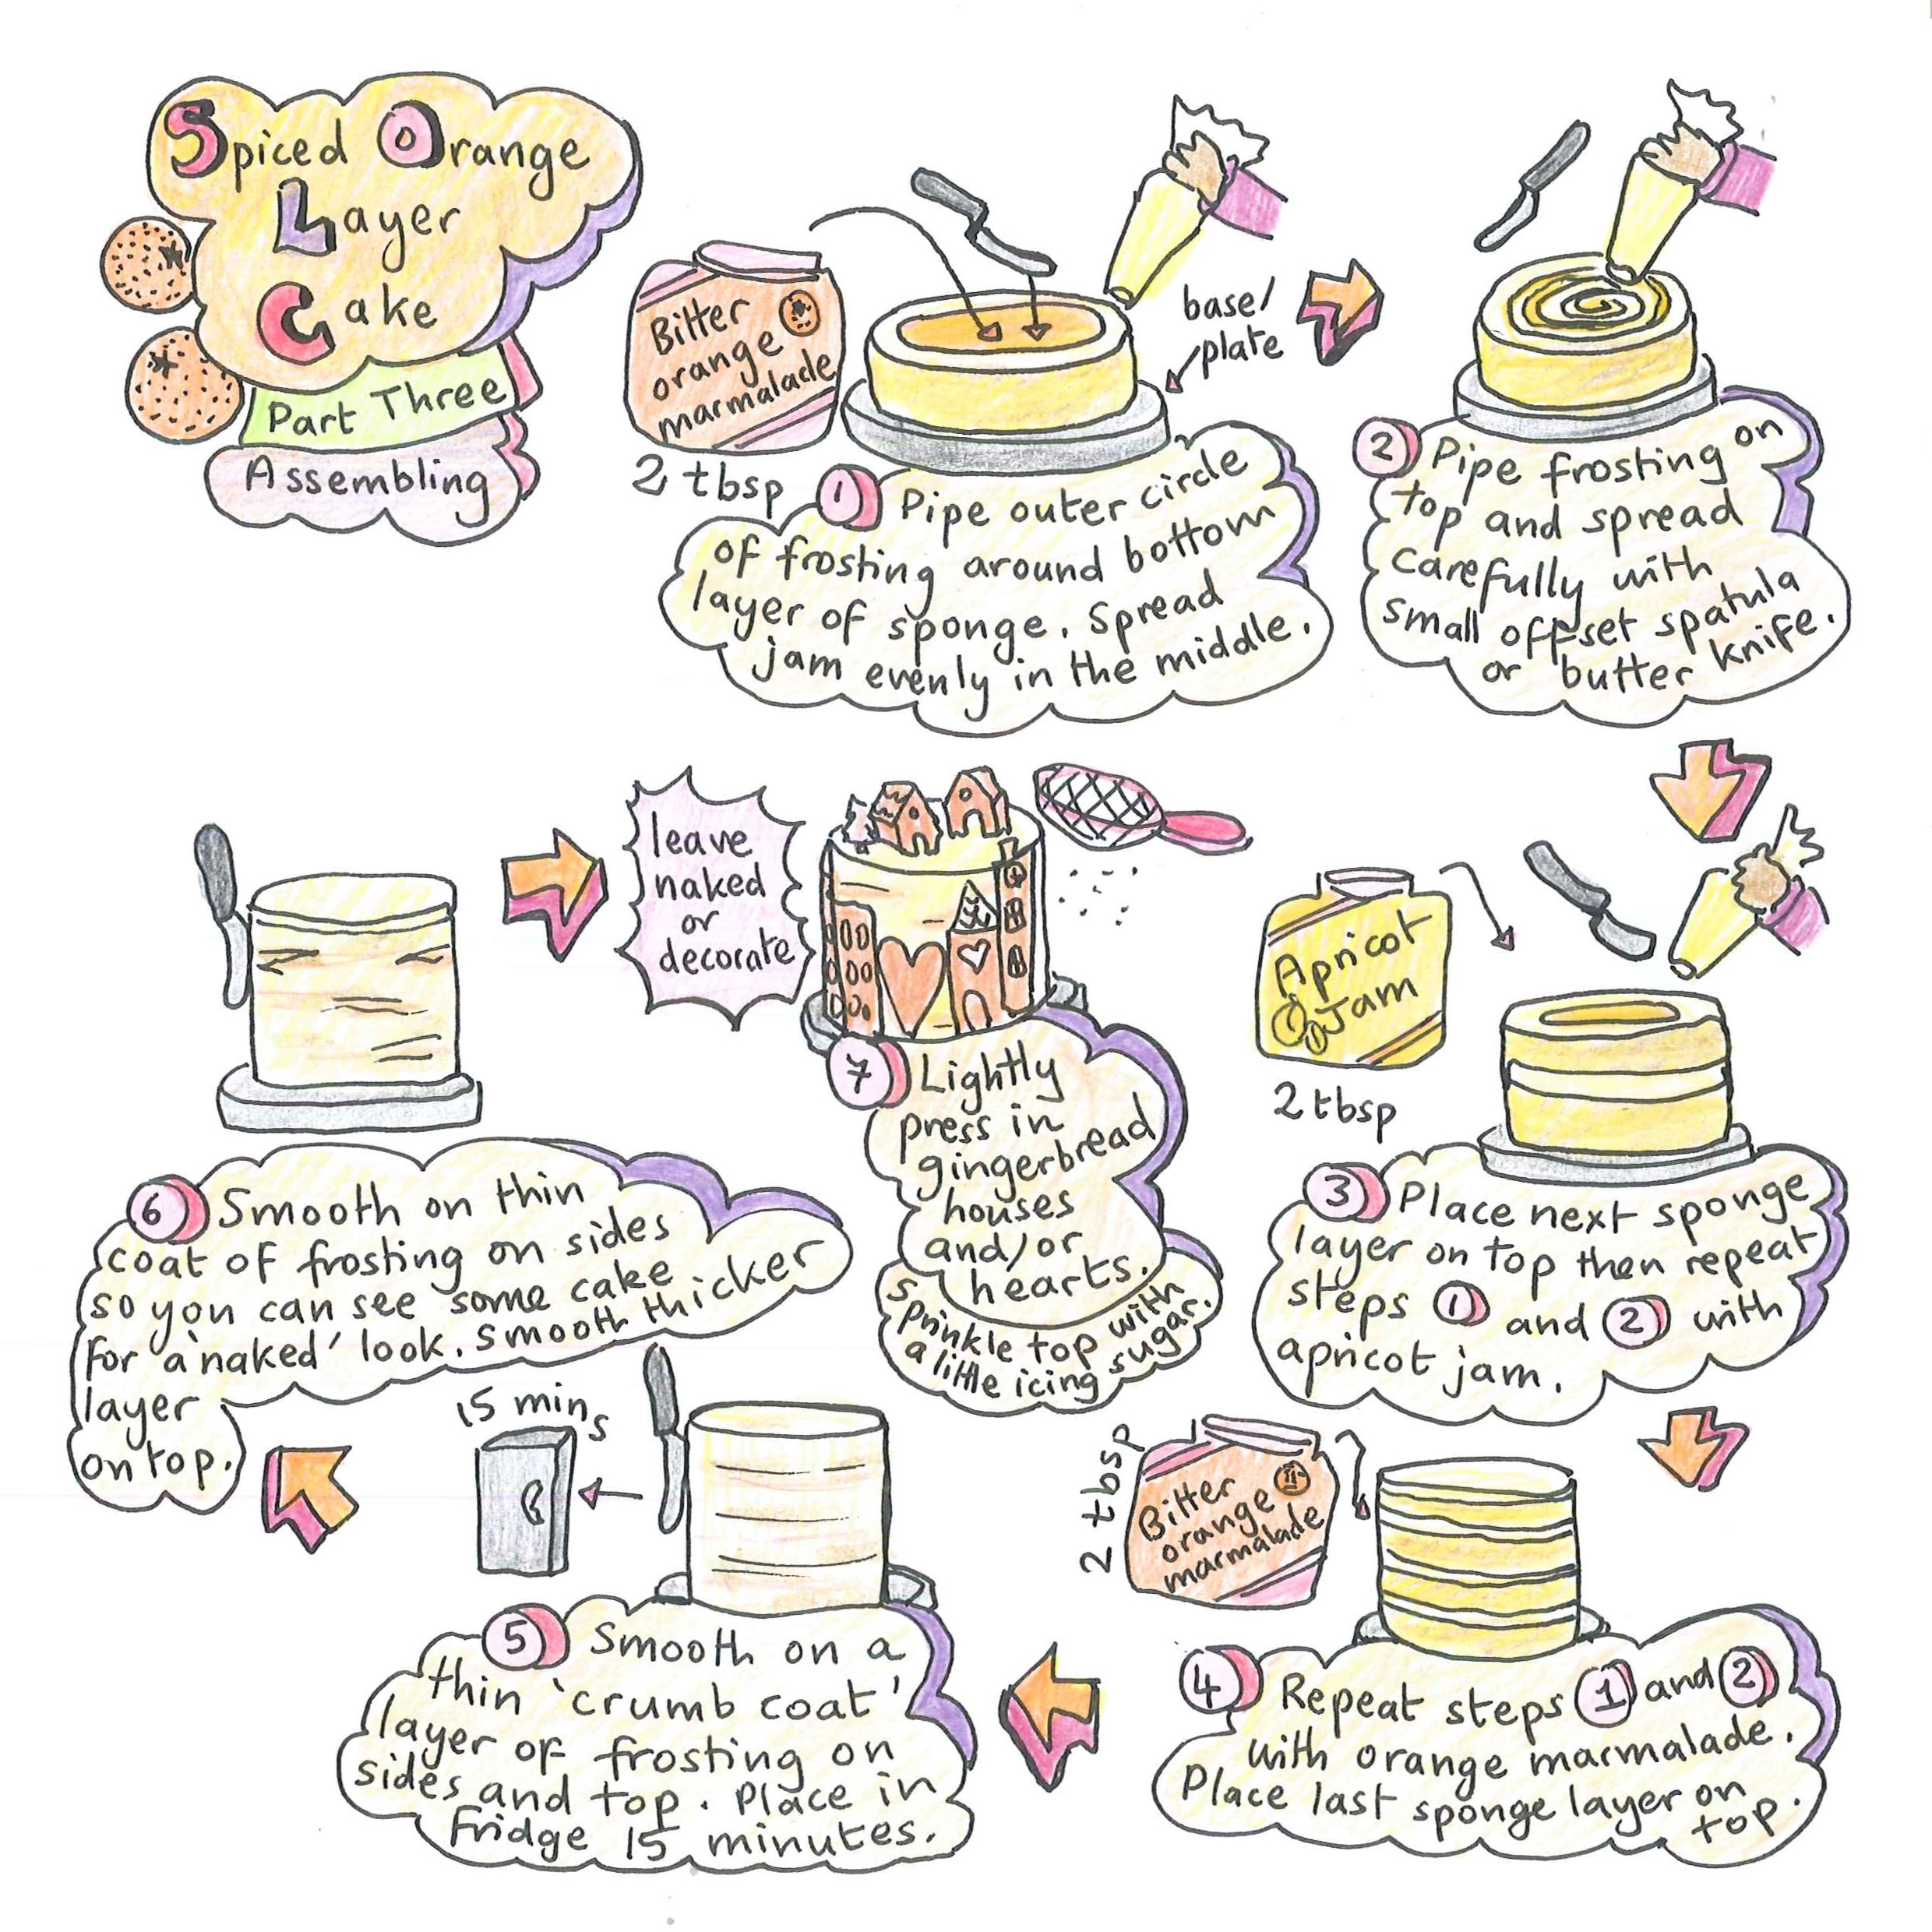 Spiced Orange
Layer
Cake
Part Three
Assembling
Bitter
orange
marmalade
2 tbsp
base/
plate
1 Pipe outer circle
of frosting around bottom
layer of sponge. Spread
jam evenly in the middle.
2 Pipe frosting on
top and spread
carefully with
small offset spatula
or butter knife.
Apricot
Jam
2 tbsp
3 Place next sponge
layer on top then repeat
steps 1 and 2 with
apricot jam.
2 tbsp
Bitter
orange
marmalade
4 Repeat steps 1 and 2
with orange marmalade.
Place last sponge layer on
top.
15 mins
5 Smooth on a
thin 'crumb coat'
layer of frosting on
sides and top. Place in
fridge 15 minutes.
6 Smooth on thin
coat of frosting on sides
so you can see some cake
for a 'naked' look. Smooth thicker
layer
on top.
leave
naked
or
decorate
7 Lightly
press in
gingerbread
houses
and/or
hearts.
Sprinkle top with
a little icing sugar.